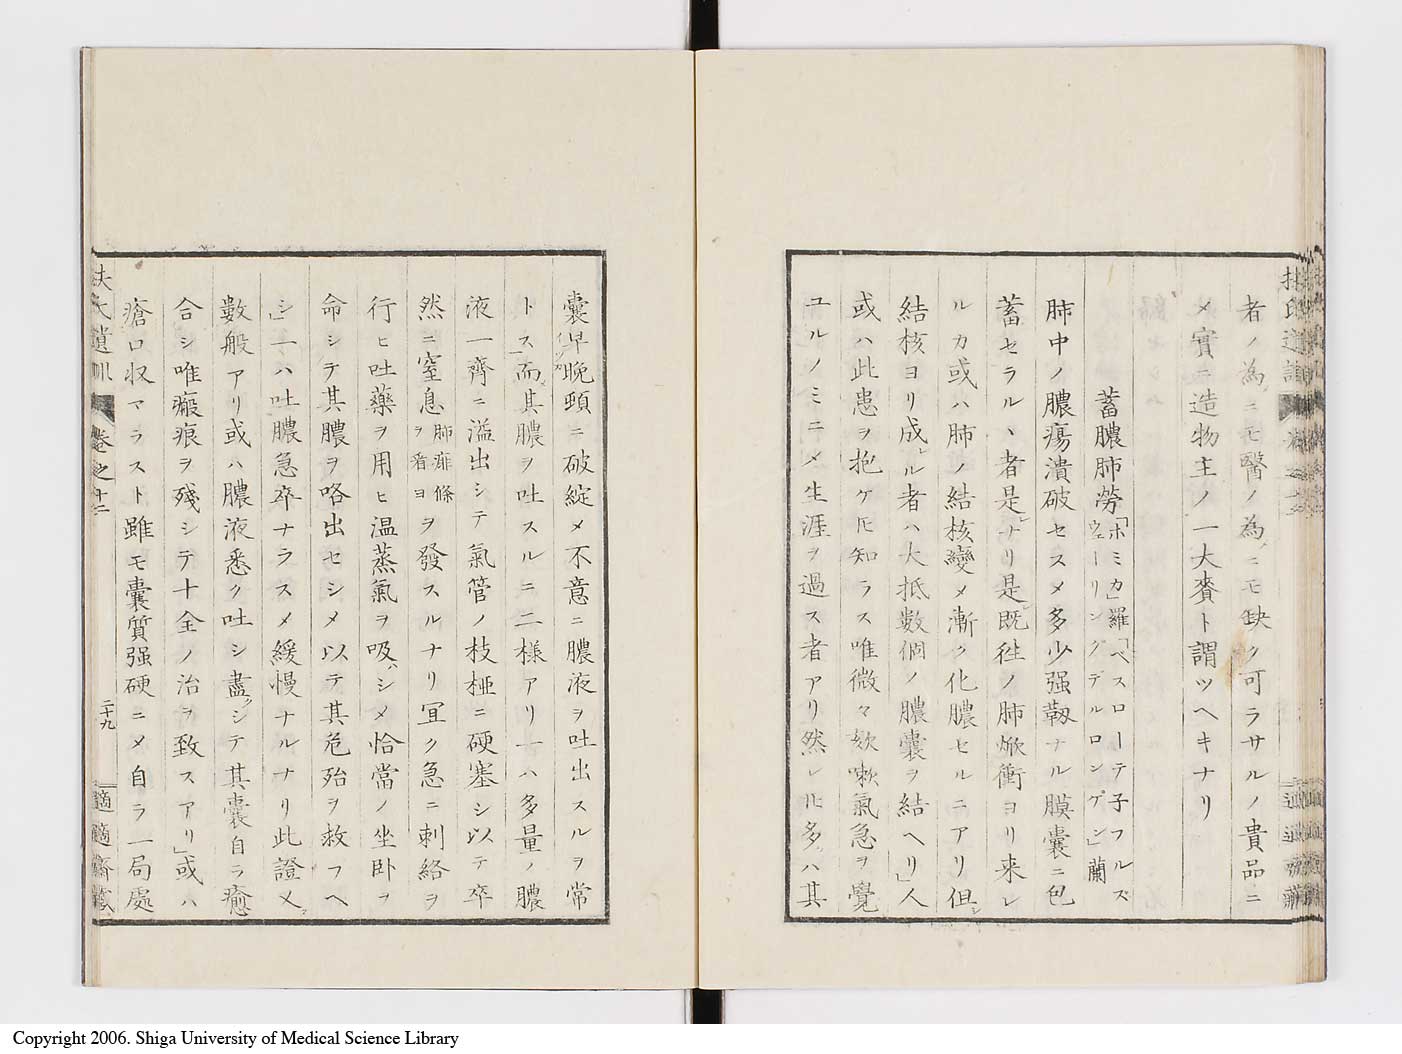 者ノ為ニモ醫ノ為ニモ缺ク可ラサルノ貴品ニ
メ實ニ造物主ノ一大賚ト謂ツヘキナリ
蓄膿肺勞「ホミカ」羅「ベスローテ子フルズ
ウェーリングデルロンゲン」蘭
肺中ノ膿瘍潰破セスメ多少强靱ナル膜囊ニ包
蓄セラルヽ者是ナリ是既徃ノ肺焮衝ヨリ来レ
ルカ或ハ肺ノ結核變メ漸ク化膿セルニアリ但
結核ヨリ成ル者ハ大抵數個ノ膿囊ヲ結ヘリ」人
或ハ此患ヲ抱ケ𪜈知ラス唯微々欬嗽氣急ヲ覺
ユルノミニメ生涯ヲ過ス者アリ然レ𪜈多ハ其
囊早晩頭ニ破綻メ不意ニ膿液ヲ吐出スルヲ常
トス」而其膿ヲ吐スルニ二様アリ一ハ多量ノ膿
液一齊ニ溢出シテ氣管ノ枝椏ニ硬塞シ以テ卒
然ニ窒息肺癰條
ヲ看ヨヲ發スルナリ宜ク急ニ刺絡ヲ
行ヒ吐藥ヲ用ヒ温蒸氣ヲ吸ハシメ恰當ノ坐卧ヲ
命シテ其膿ヲ咯出セシメ以テ其危殆ヲ救フヘ
シ」一ハ吐膿急卒ナラスメ緩慢ナルナリ此證メ
數般アリ或ハ膿液悉ク吐シ盡シテ其囊自ラ癒
合シ唯瘢痕ヲ殘シテ十全ノ治ヲ致スアリ」或ハ
瘡口収マラスト雖モ囊質强硬ニメ自ラ一局處
扶氏遺訓 卷之十二
二十九
適適齋藏